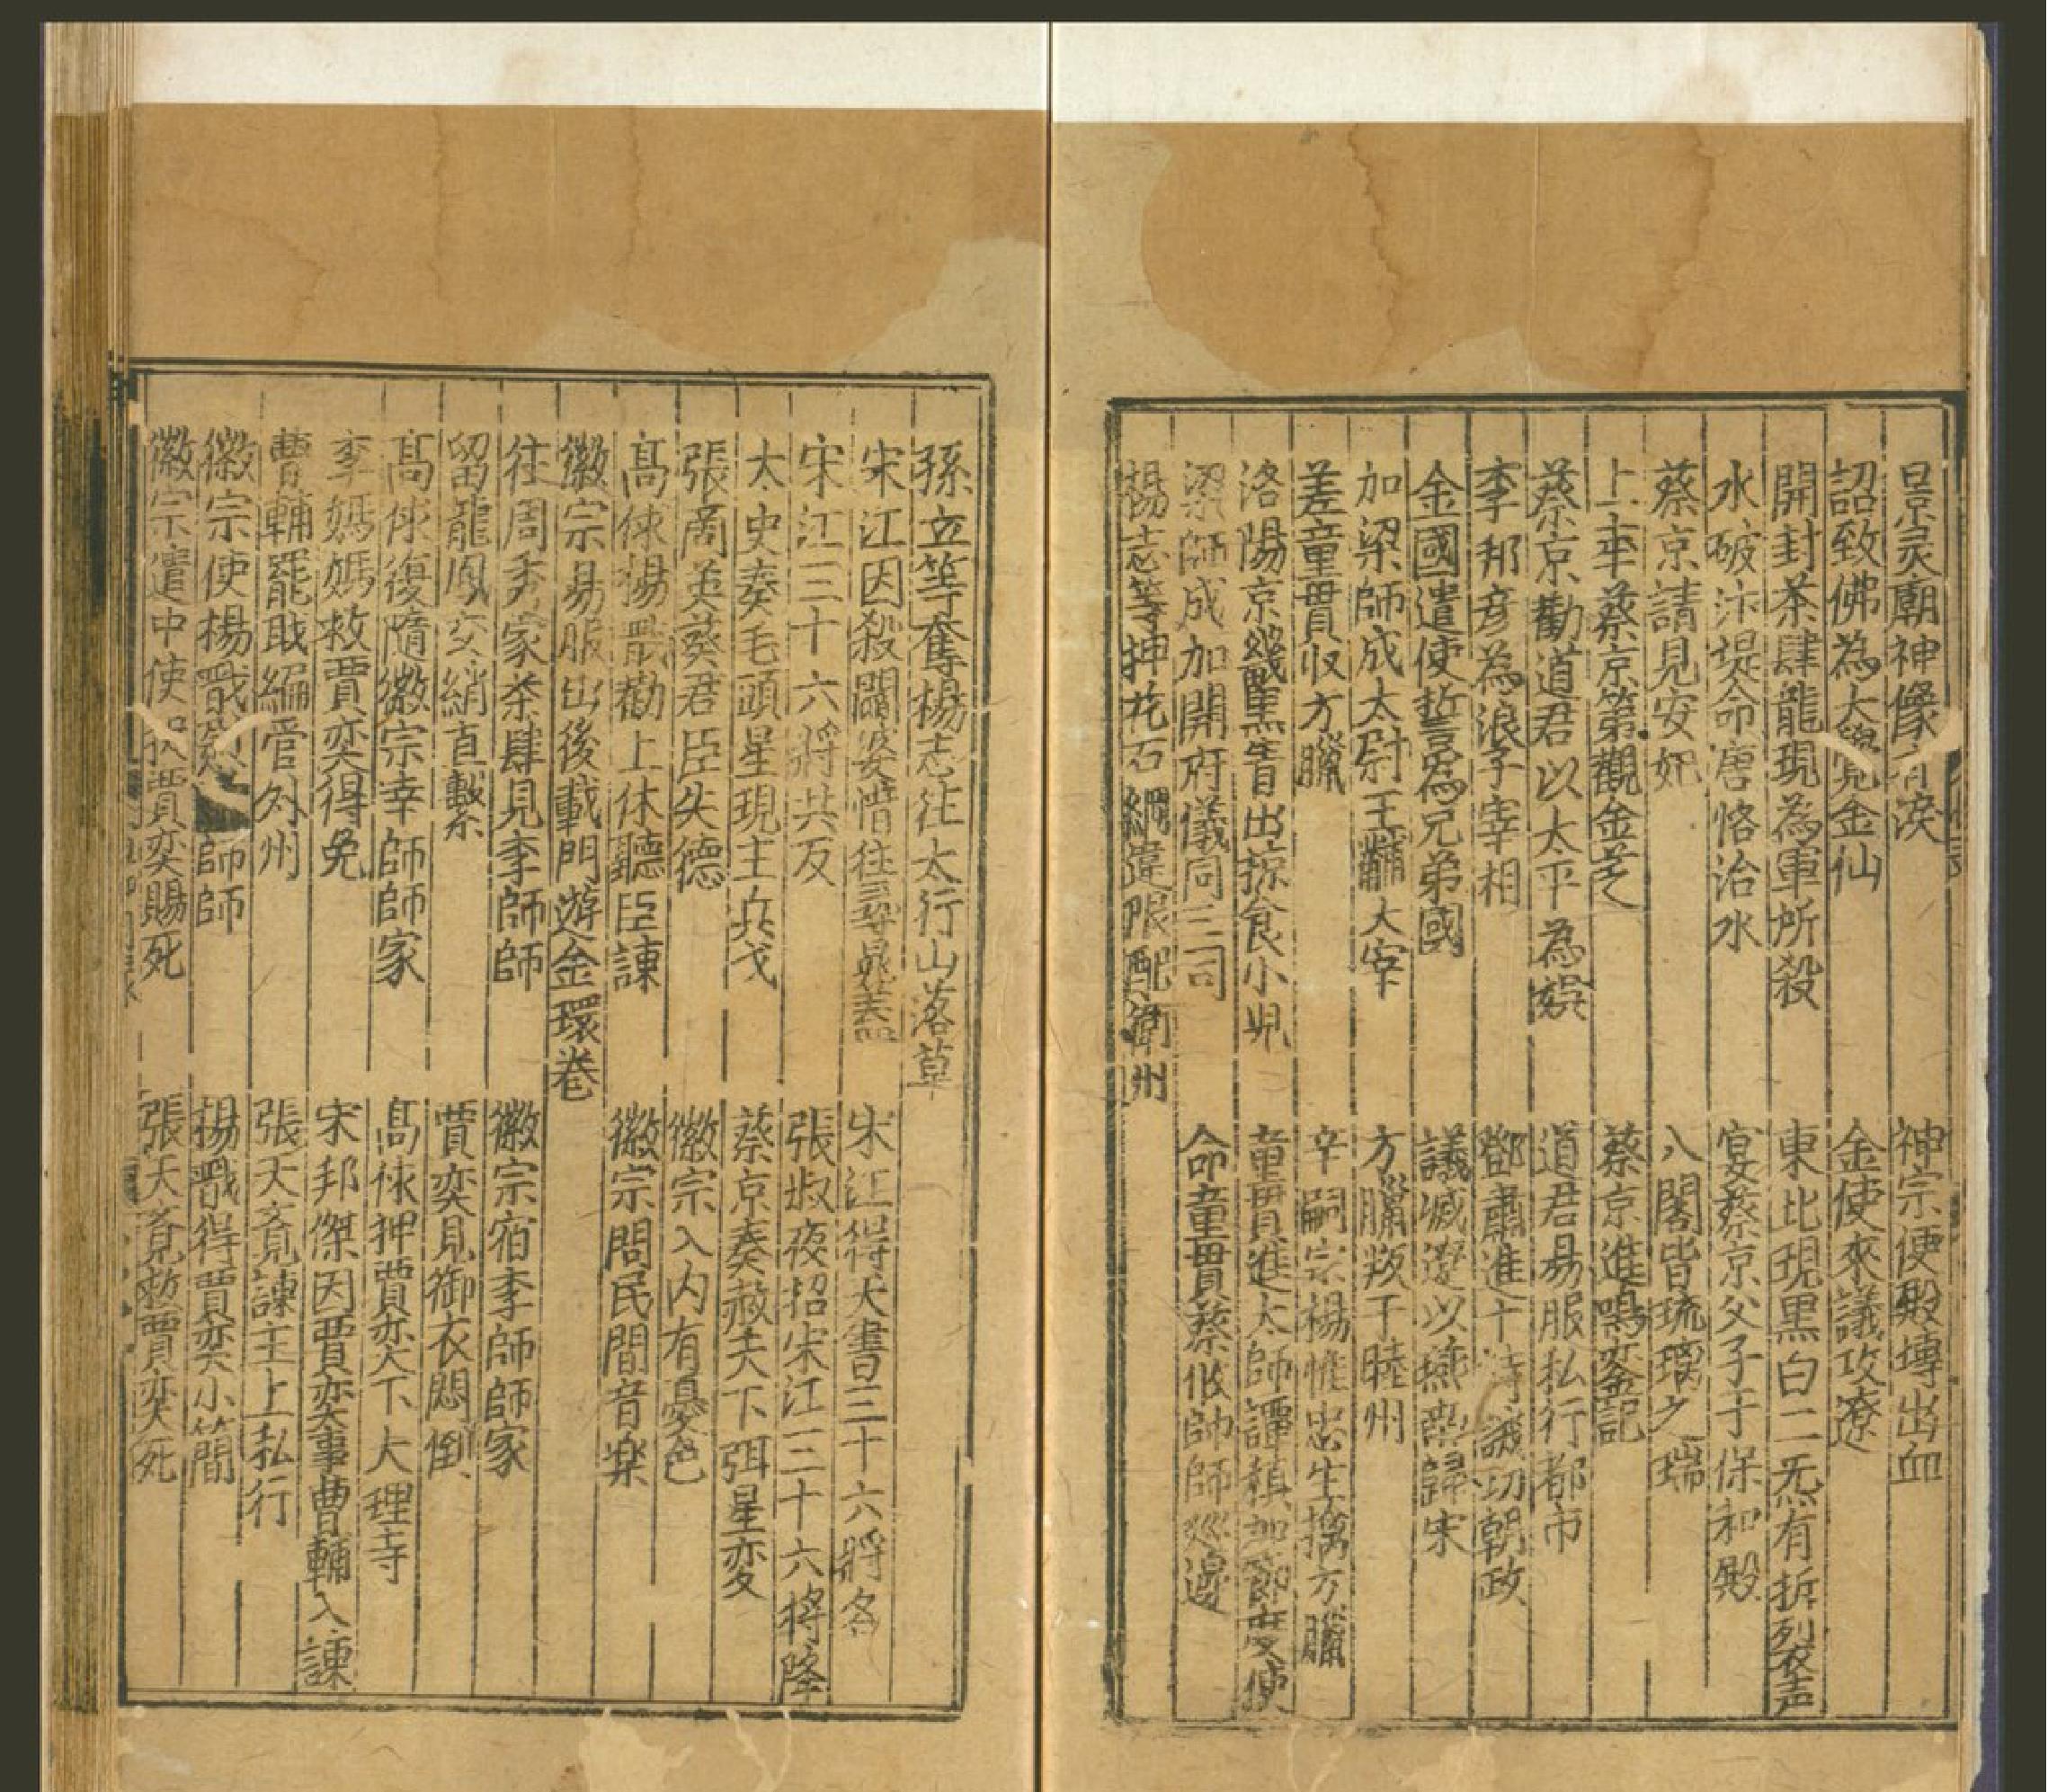 景灵廟神像有淚
神宗便殿塼出血
詔致佛為大覺金仙
金使來議攻遼
開封茶肆龍現為軍所殺
東北現黒白二炁有拆裂声
水破汴堤命唐恪治水
宴蔡京父子于保和殿
蔡京請見安妃
入閣皆琉璃之瑞
上幸蔡京第觀金芝
蔡京進鳴鑾記
蔡京勸道君以太平為娯
道君易服私行都市
李邦彦為浪子宰相
鄧肅進十詩諷切朝政
金國遣使誓為兄弟國
議减遼以燕雲歸宋
加梁師成太尉王黼大宰
方臘叛于睦州
差童貫收方臘
辛嗣宗楊惟忠生擒方臘
洛陽京畿黒眚出掠食小児
童貫進太師譚稹加節度使
梁師成加開府儀同三司
命童貫蔡攸帥師巡邊
楊志等押花石綱違限配衛州
孫立等奪楊志徃太行山落草
宋江因殺閻婆惜往尋晁盖
宋江得天書三十六將名
宋江三十六將共反
張叔夜招宋江三十六將降
太史奏毛頭星現主兵戈
蔡京奏赦天下弭星変
張商英奏君臣失德
徽宗入内有憂色
髙俅楊戩勸上休聽臣諫
徽宗問民間音楽
徽宗易服出後載門遊金環巷
徃周秀家茶肆見李師師
徽宗宿李師師家
留龍鳳交綃直繫
賈奕見御衣悶倒
髙俅復隨徽宗幸師師家
髙俅押賈奕下大理寺
李媽媽救賈奕得免
宋邦傑因賈奕事曹輔入諫
曹輔罷職編管外州
張天覔諫主上私行
徽宗使楊戩 師師
楊戩得賈奕小簡
徽宗遣中使 賈奕賜死
張天覔救賈奕死